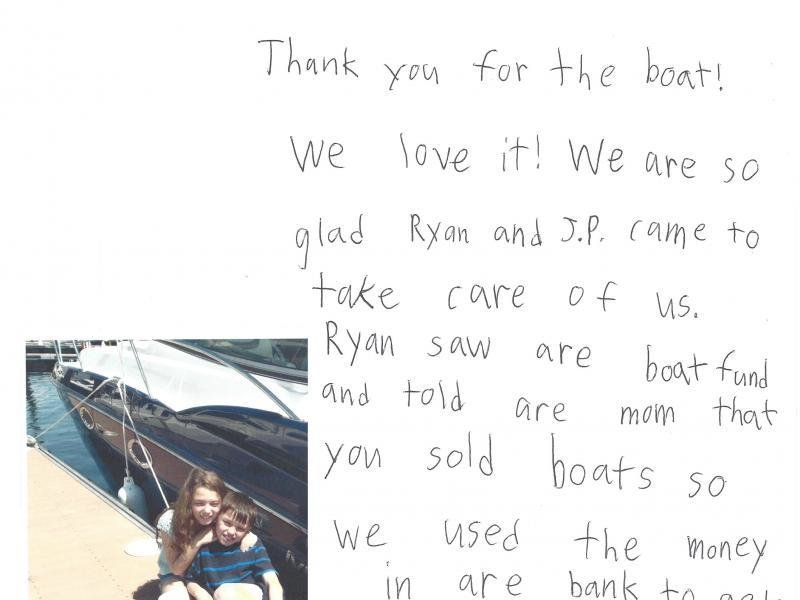 Thank you for the boat!
We love it! We are so
glad Ryan and J.P. came to
take care of us.
Ryan saw are boat fund
and told are mom that
you sold boats so
we used the money
in are bank to get